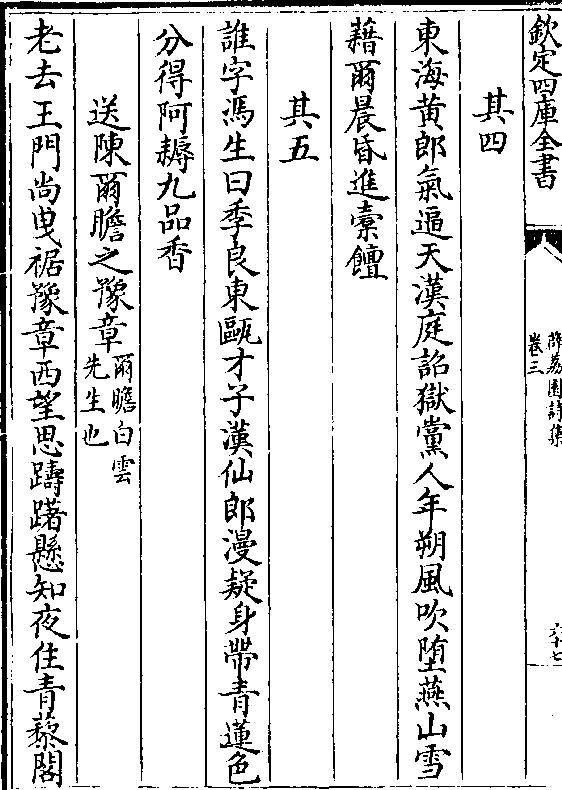 欽定四庫全書
薜荔園詩集
卷三
六十七
其四
東海黄郎氣逼天漢庭詔獄黨人年朔風吹堕燕山雪
藉爾晨昏進橐饘
其五
誰字馮生曰季良東甌才子漢仙郎漫疑身帶青蓮色
分得阿耨九品香
送陳爾瞻之豫章
爾瞻白雲
先生也
老去王門尚曵裾豫章西望思躊躇懸知夜住青藜閣